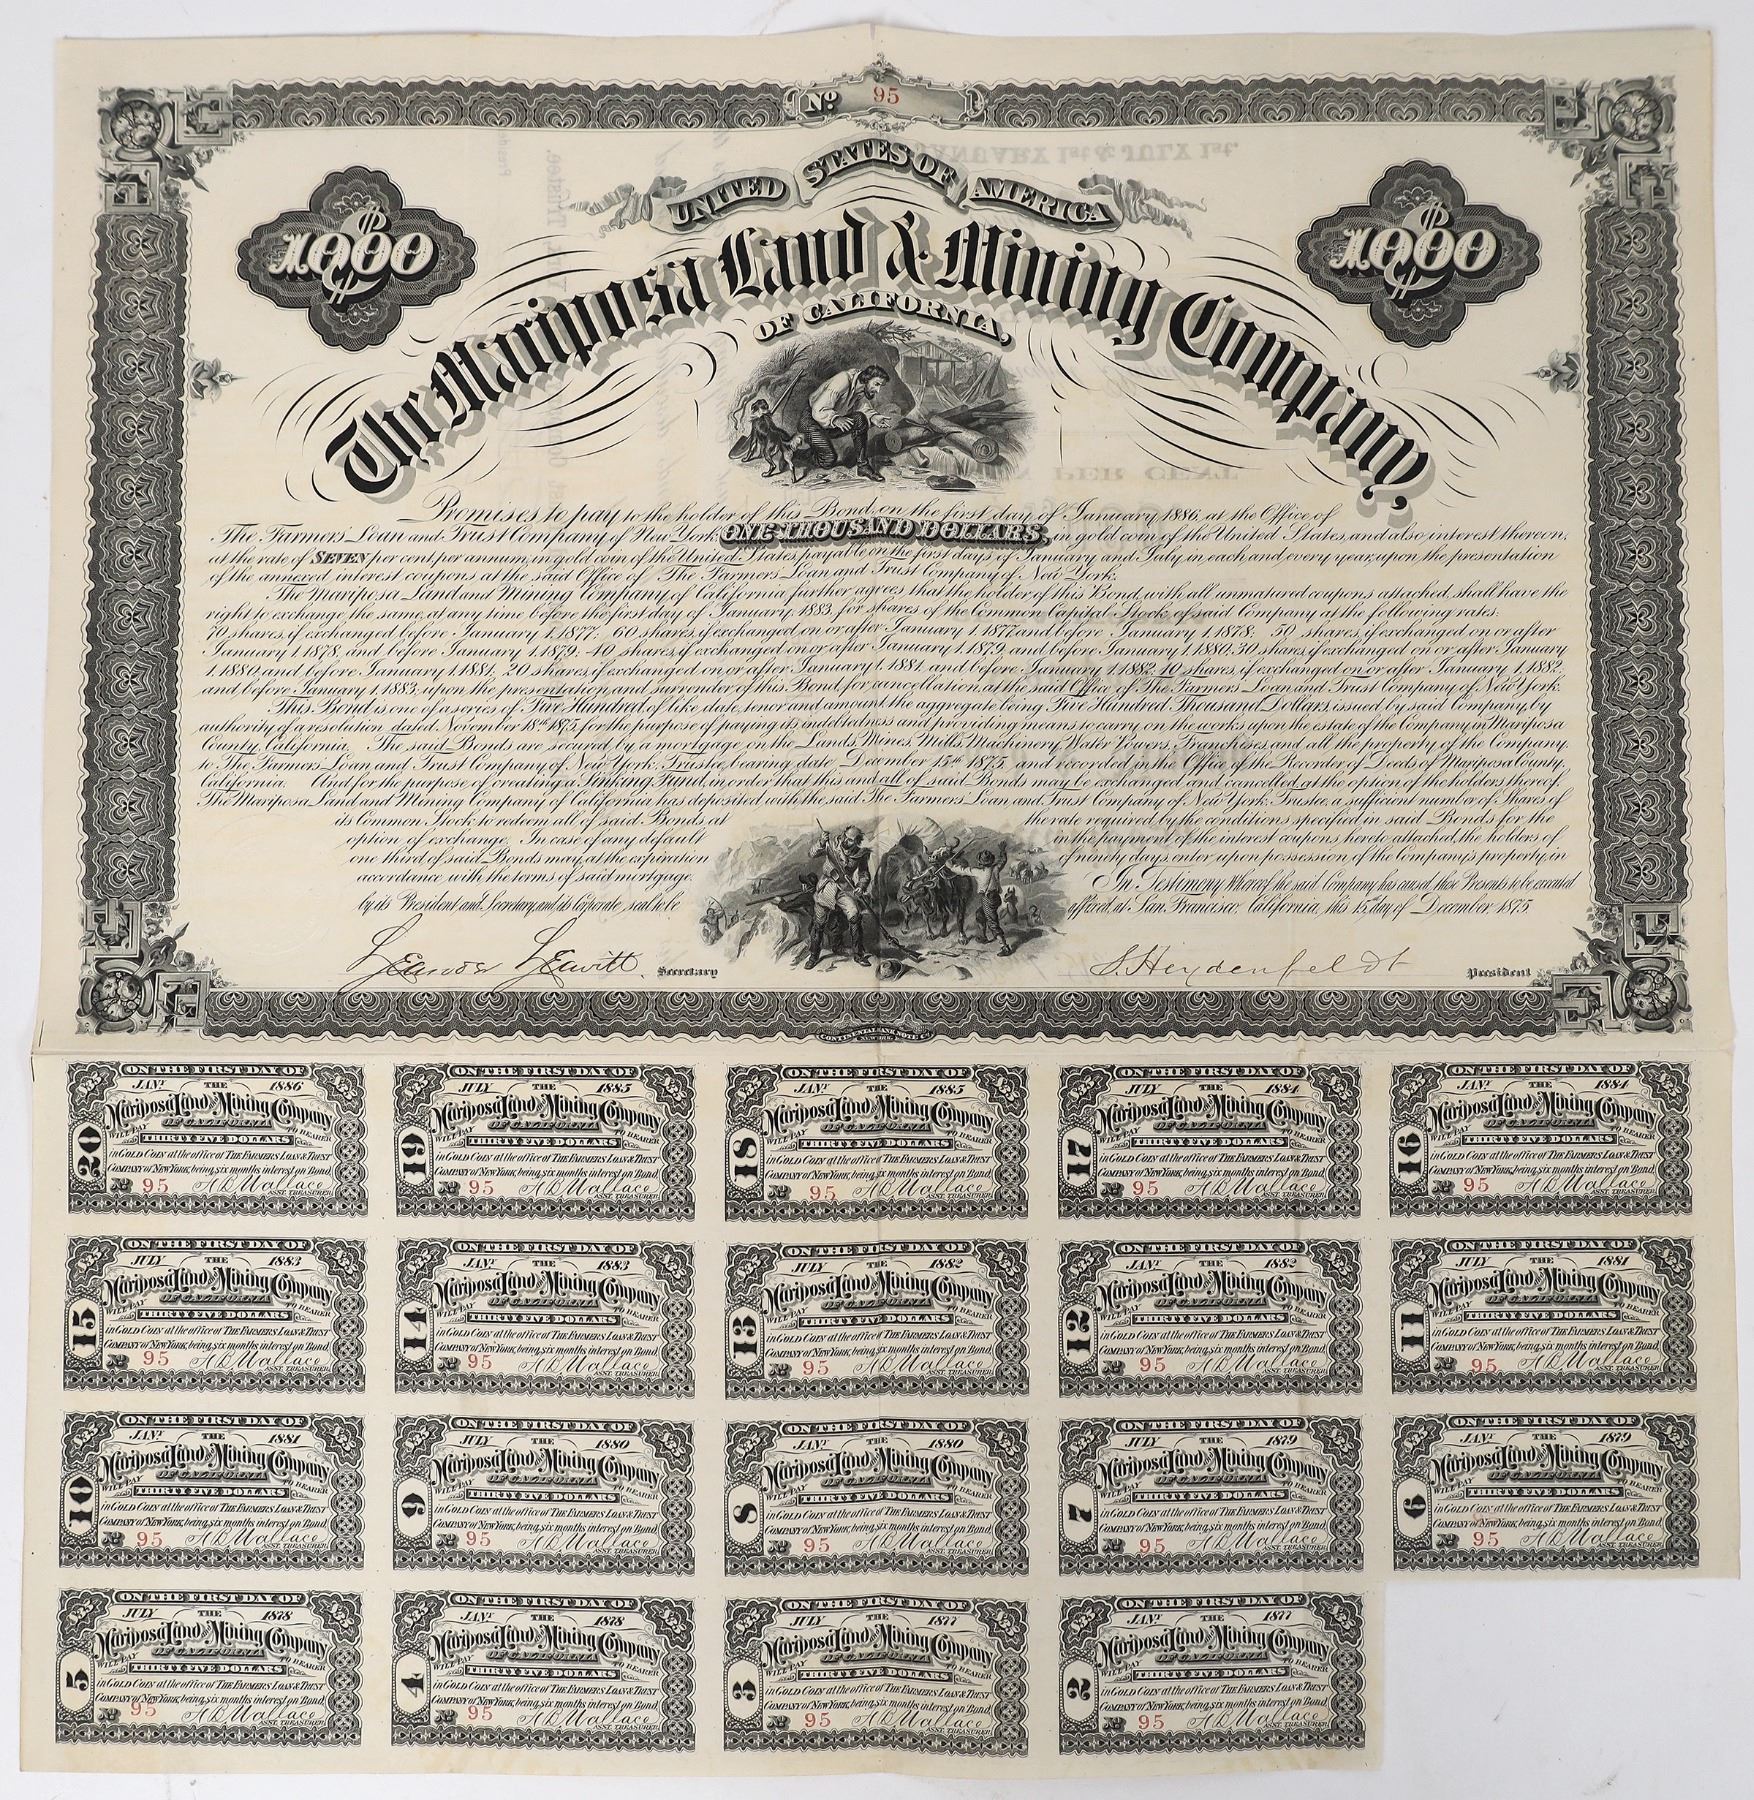 No. 95
UNITED STATES OF AMERICA
$1000
$1000
The Mariposa Land & Mining Company,
OF CALIFORNIA,
Promises to pay to the holder of this Bond, on the first day of January 1886, at the Office of
The Farmers Loan and Trust Company of New York ONE THOUSAND DOLLARS, in gold coin of the United States, and also interest thereon,
at the rate of SEVEN per cent per annum, in gold coin of the United States, payable on the first days of January and July, in each and every year, upon the presentation
of the annexed interest coupons at the said Office of The Farmers Loan and Trust Company of New York.
The Mariposa Land and Mining Company of California further agrees that the holder of this Bond, with all unmatured coupons attached, shall have the
right to exchange the same, at any time before the first day of January, 1883, for shares of the Common Capital Stock, of said Company at the following rates:
70 shares, if exchanged before January 1, 1877; 60 shares, if exchanged on or after January 1, 1877 and before January 1, 1878; 50 shares, if exchanged on or after
January 1, 1878, and before January 1, 1879; 40 shares, if exchanged on or after January 1, 1879, and before January 1, 1880; 30 shares, if exchanged on or after January
1, 1880, and before January 1, 1881; 20 shares, if exchanged on or after January 1, 1881, and before January 1, 1882; 10 shares, if exchanged on or after January 1, 1882,
and before January 1, 1883, upon the presentation and surrender of this Bond, for cancellation, at the said Office of The Farmers Loan and Trust Company of New York.
This Bond is one of a series of Five Hundred of like date, tenor and amount, the aggregate being Five Hundred Thousand Dollars, issued by said Company, by
authority of a resolution dated November 18th 1875, for the purpose of paying its indebtedness and providing means to carry on the works upon the estate of the Company, in Mariposa
County, California. The said Bonds are secured by a mortgage, on the Lands, Mines, Mills, Machinery, Water Powers, Franchises, and all the property of the Company,
to The Farmers Loan and Trust Company of New York, Trustee, bearing date December 15th 1875, and recorded in the Office of the Recorder of Deeds of Mariposa County,
California. And for the purpose of creating a Sinking Fund, in order that this and all of said Bonds may be exchanged and cancelled, at the option of the holders thereof,
The Mariposa Land and Mining Company of California has deposited with the said The Farmers Loan and Trust Company of New York, Trustee, a sufficient number of Shares of
its Common Stock to redeem all of said Bonds at the rate required by the conditions specified in said Bonds for the
option of exchange. In case of any default in the payment of the interest coupons hereto attached, the holders of
one third of said Bonds may, at the expiration of ninety days, enter upon possession of the Company's property, in
accordance with the terms of said mortgage. In Testimony Whereof the said Company has caused these Presents to be executed
by its President and Secretary, and its Corporate seal to be affixed, at San Francisco, California, this 15th day of December 1875.
Leander Leavitt Secretary
S. Heydenfeldt President
CONTINENTAL BANK NOTE CO. NEW YORK
ON THE FIRST DAY OF
JANY. THE 1886
Mariposa Land and Mining Company
OF CALIFORNIA
WILL PAY TO BEARER
THIRTY FIVE DOLLARS
in GOLD COIN at the office of THE FARMERS LOAN & TRUST
COMPANY of NEW YORK, being six months interest on Bond
20
No 95 A B Wallace
ASST. TREASURER
ON THE FIRST DAY OF
JULY THE 1885
Mariposa Land and Mining Company
OF CALIFORNIA
WILL PAY TO BEARER
THIRTY FIVE DOLLARS
in GOLD COIN at the office of THE FARMERS LOAN & TRUST
COMPANY of NEW YORK, being six months interest on Bond
19
No 95 A B Wallace
ASST. TREASURER
ON THE FIRST DAY OF
JANY. THE 1885
Mariposa Land and Mining Company
OF CALIFORNIA
WILL PAY TO BEARER
THIRTY FIVE DOLLARS
in GOLD COIN at the office of THE FARMERS LOAN & TRUST
COMPANY of NEW YORK, being six months interest on Bond
18
No 95 A B Wallace
ASST. TREASURER
ON THE FIRST DAY OF
JULY THE 1884
Mariposa Land and Mining Company
OF CALIFORNIA
WILL PAY TO BEARER
THIRTY FIVE DOLLARS
in GOLD COIN at the office of THE FARMERS LOAN & TRUST
COMPANY of NEW YORK, being six months interest on Bond
17
No 95 A B Wallace
ASST. TREASURER
ON THE FIRST DAY OF
JANY. THE 1884
Mariposa Land and Mining Company
OF CALIFORNIA
WILL PAY TO BEARER
THIRTY FIVE DOLLARS
in GOLD COIN at the office of THE FARMERS LOAN & TRUST
COMPANY of NEW YORK, being six months interest on Bond
16
No 95 A B Wallace
ASST. TREASURER
ON THE FIRST DAY OF
JULY THE 1883
Mariposa Land and Mining Company
OF CALIFORNIA
WILL PAY TO BEARER
THIRTY FIVE DOLLARS
in GOLD COIN at the office of THE FARMERS LOAN & TRUST
COMPANY of NEW YORK, being six months interest on Bond
15
No 95 A B Wallace
ASST. TREASURER
ON THE FIRST DAY OF
JANY. THE 1883
Mariposa Land and Mining Company
OF CALIFORNIA
WILL PAY TO BEARER
THIRTY FIVE DOLLARS
in GOLD COIN at the office of THE FARMERS LOAN & TRUST
COMPANY of NEW YORK, being six months interest on Bond
14
No 95 A B Wallace
ASST. TREASURER
ON THE FIRST DAY OF
JULY THE 1882
Mariposa Land and Mining Company
OF CALIFORNIA
WILL PAY TO BEARER
THIRTY FIVE DOLLARS
in GOLD COIN at the office of THE FARMERS LOAN & TRUST
COMPANY of NEW YORK, being six months interest on Bond
13
No 95 A B Wallace
ASST. TREASURER
ON THE FIRST DAY OF
JANY. THE 1882
Mariposa Land and Mining Company
OF CALIFORNIA
WILL PAY TO BEARER
THIRTY FIVE DOLLARS
in GOLD COIN at the office of THE FARMERS LOAN & TRUST
COMPANY of NEW YORK, being six months interest on Bond
12
No 95 A B Wallace
ASST. TREASURER
ON THE FIRST DAY OF
JULY THE 1881
Mariposa Land and Mining Company
OF CALIFORNIA
WILL PAY TO BEARER
THIRTY FIVE DOLLARS
in GOLD COIN at the office of THE FARMERS LOAN & TRUST
COMPANY of NEW YORK, being six months interest on Bond
11
No 95 A B Wallace
ASST. TREASURER
ON THE FIRST DAY OF
JANY. THE 1881
Mariposa Land and Mining Company
OF CALIFORNIA
WILL PAY TO BEARER
THIRTY FIVE DOLLARS
in GOLD COIN at the office of THE FARMERS LOAN & TRUST
COMPANY of NEW YORK, being six months interest on Bond
10
No 95 A B Wallace
ASST. TREASURER
ON THE FIRST DAY OF
JULY THE 1880
Mariposa Land and Mining Company
OF CALIFORNIA
WILL PAY TO BEARER
THIRTY FIVE DOLLARS
in GOLD COIN at the office of THE FARMERS LOAN & TRUST
COMPANY of NEW YORK, being six months interest on Bond
9
No 95 A B Wallace
ASST. TREASURER
ON THE FIRST DAY OF
JANY. THE 1880
Mariposa Land and Mining Company
OF CALIFORNIA
WILL PAY TO BEARER
THIRTY FIVE DOLLARS
in GOLD COIN at the office of THE FARMERS LOAN & TRUST
COMPANY of NEW YORK, being six months interest on Bond
8
No 95 A B Wallace
ASST. TREASURER
ON THE FIRST DAY OF
JULY THE 1879
Mariposa Land and Mining Company
OF CALIFORNIA
WILL PAY TO BEARER
THIRTY FIVE DOLLARS
in GOLD COIN at the office of THE FARMERS LOAN & TRUST
COMPANY of NEW YORK, being six months interest on Bond
7
No 95 A B Wallace
ASST. TREASURER
ON THE FIRST DAY OF
JANY. THE 1879
Mariposa Land and Mining Company
OF CALIFORNIA
WILL PAY TO BEARER
THIRTY FIVE DOLLARS
in GOLD COIN at the office of THE FARMERS LOAN & TRUST
COMPANY of NEW YORK, being six months interest on Bond
6
No 95 A B Wallace
ASST. TREASURER
ON THE FIRST DAY OF
JULY THE 1878
Mariposa Land and Mining Company
OF CALIFORNIA
WILL PAY TO BEARER
THIRTY FIVE DOLLARS
in GOLD COIN at the office of THE FARMERS LOAN & TRUST
COMPANY of NEW YORK, being six months interest on Bond
5
No 95 A B Wallace
ASST. TREASURER
ON THE FIRST DAY OF
JANY. THE 1878
Mariposa Land and Mining Company
OF CALIFORNIA
WILL PAY TO BEARER
THIRTY FIVE DOLLARS
in GOLD COIN at the office of THE FARMERS LOAN & TRUST
COMPANY of NEW YORK, being six months interest on Bond
4
No 95 A B Wallace
ASST. TREASURER
ON THE FIRST DAY OF
JULY THE 1877
Mariposa Land and Mining Company
OF CALIFORNIA
WILL PAY TO BEARER
THIRTY FIVE DOLLARS
in GOLD COIN at the office of THE FARMERS LOAN & TRUST
COMPANY of NEW YORK, being six months interest on Bond
3
No 95 A B Wallace
ASST. TREASURER
ON THE FIRST DAY OF
JANY. THE 1877
Mariposa Land and Mining Company
OF CALIFORNIA
WILL PAY TO BEARER
THIRTY FIVE DOLLARS
in GOLD COIN at the office of THE FARMERS LOAN & TRUST
COMPANY of NEW YORK, being six months interest on Bond
2
No 95 A B Wallace
ASST. TREASURER